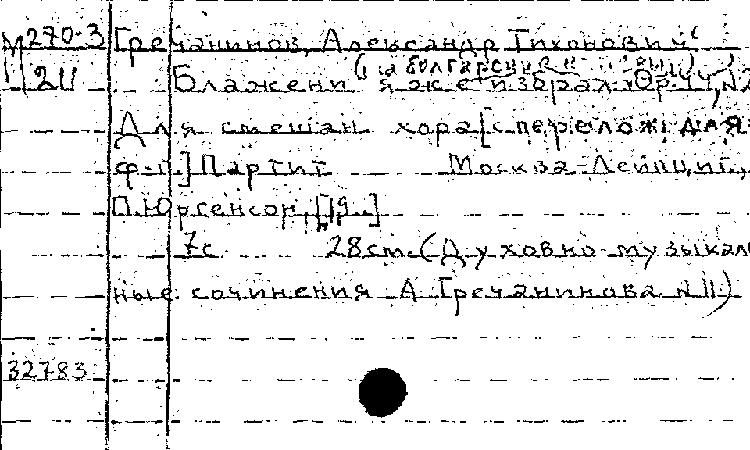 М270-3 Гречанинов, Александр Тихонович
(на болгарския
211 Блажени яже избрал. Op. №
Для смешан хора [с перелож. для
ф-п.] Партит Москва-Лейпциг,
П. Юргенсон, [19..]
7с 28см. (Духовно-музыкаль
ные сочинения А Гречанинова №11)
32783